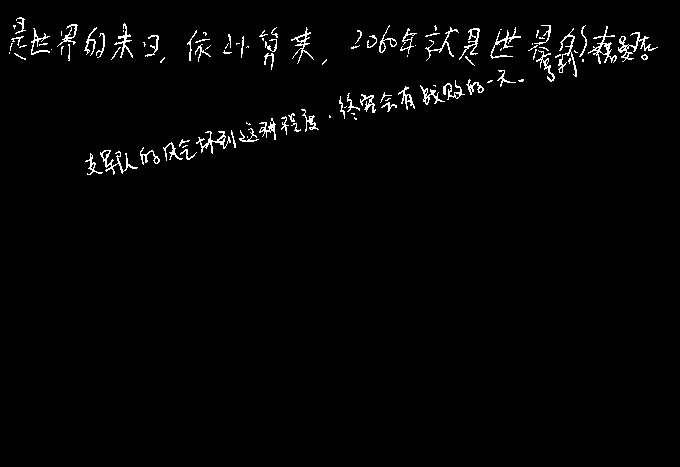 是世界的末日,依此算来,2060年就是世界的
亨利·德曼告
支军队的风气坏到这种程度,终究会有战败的一天。